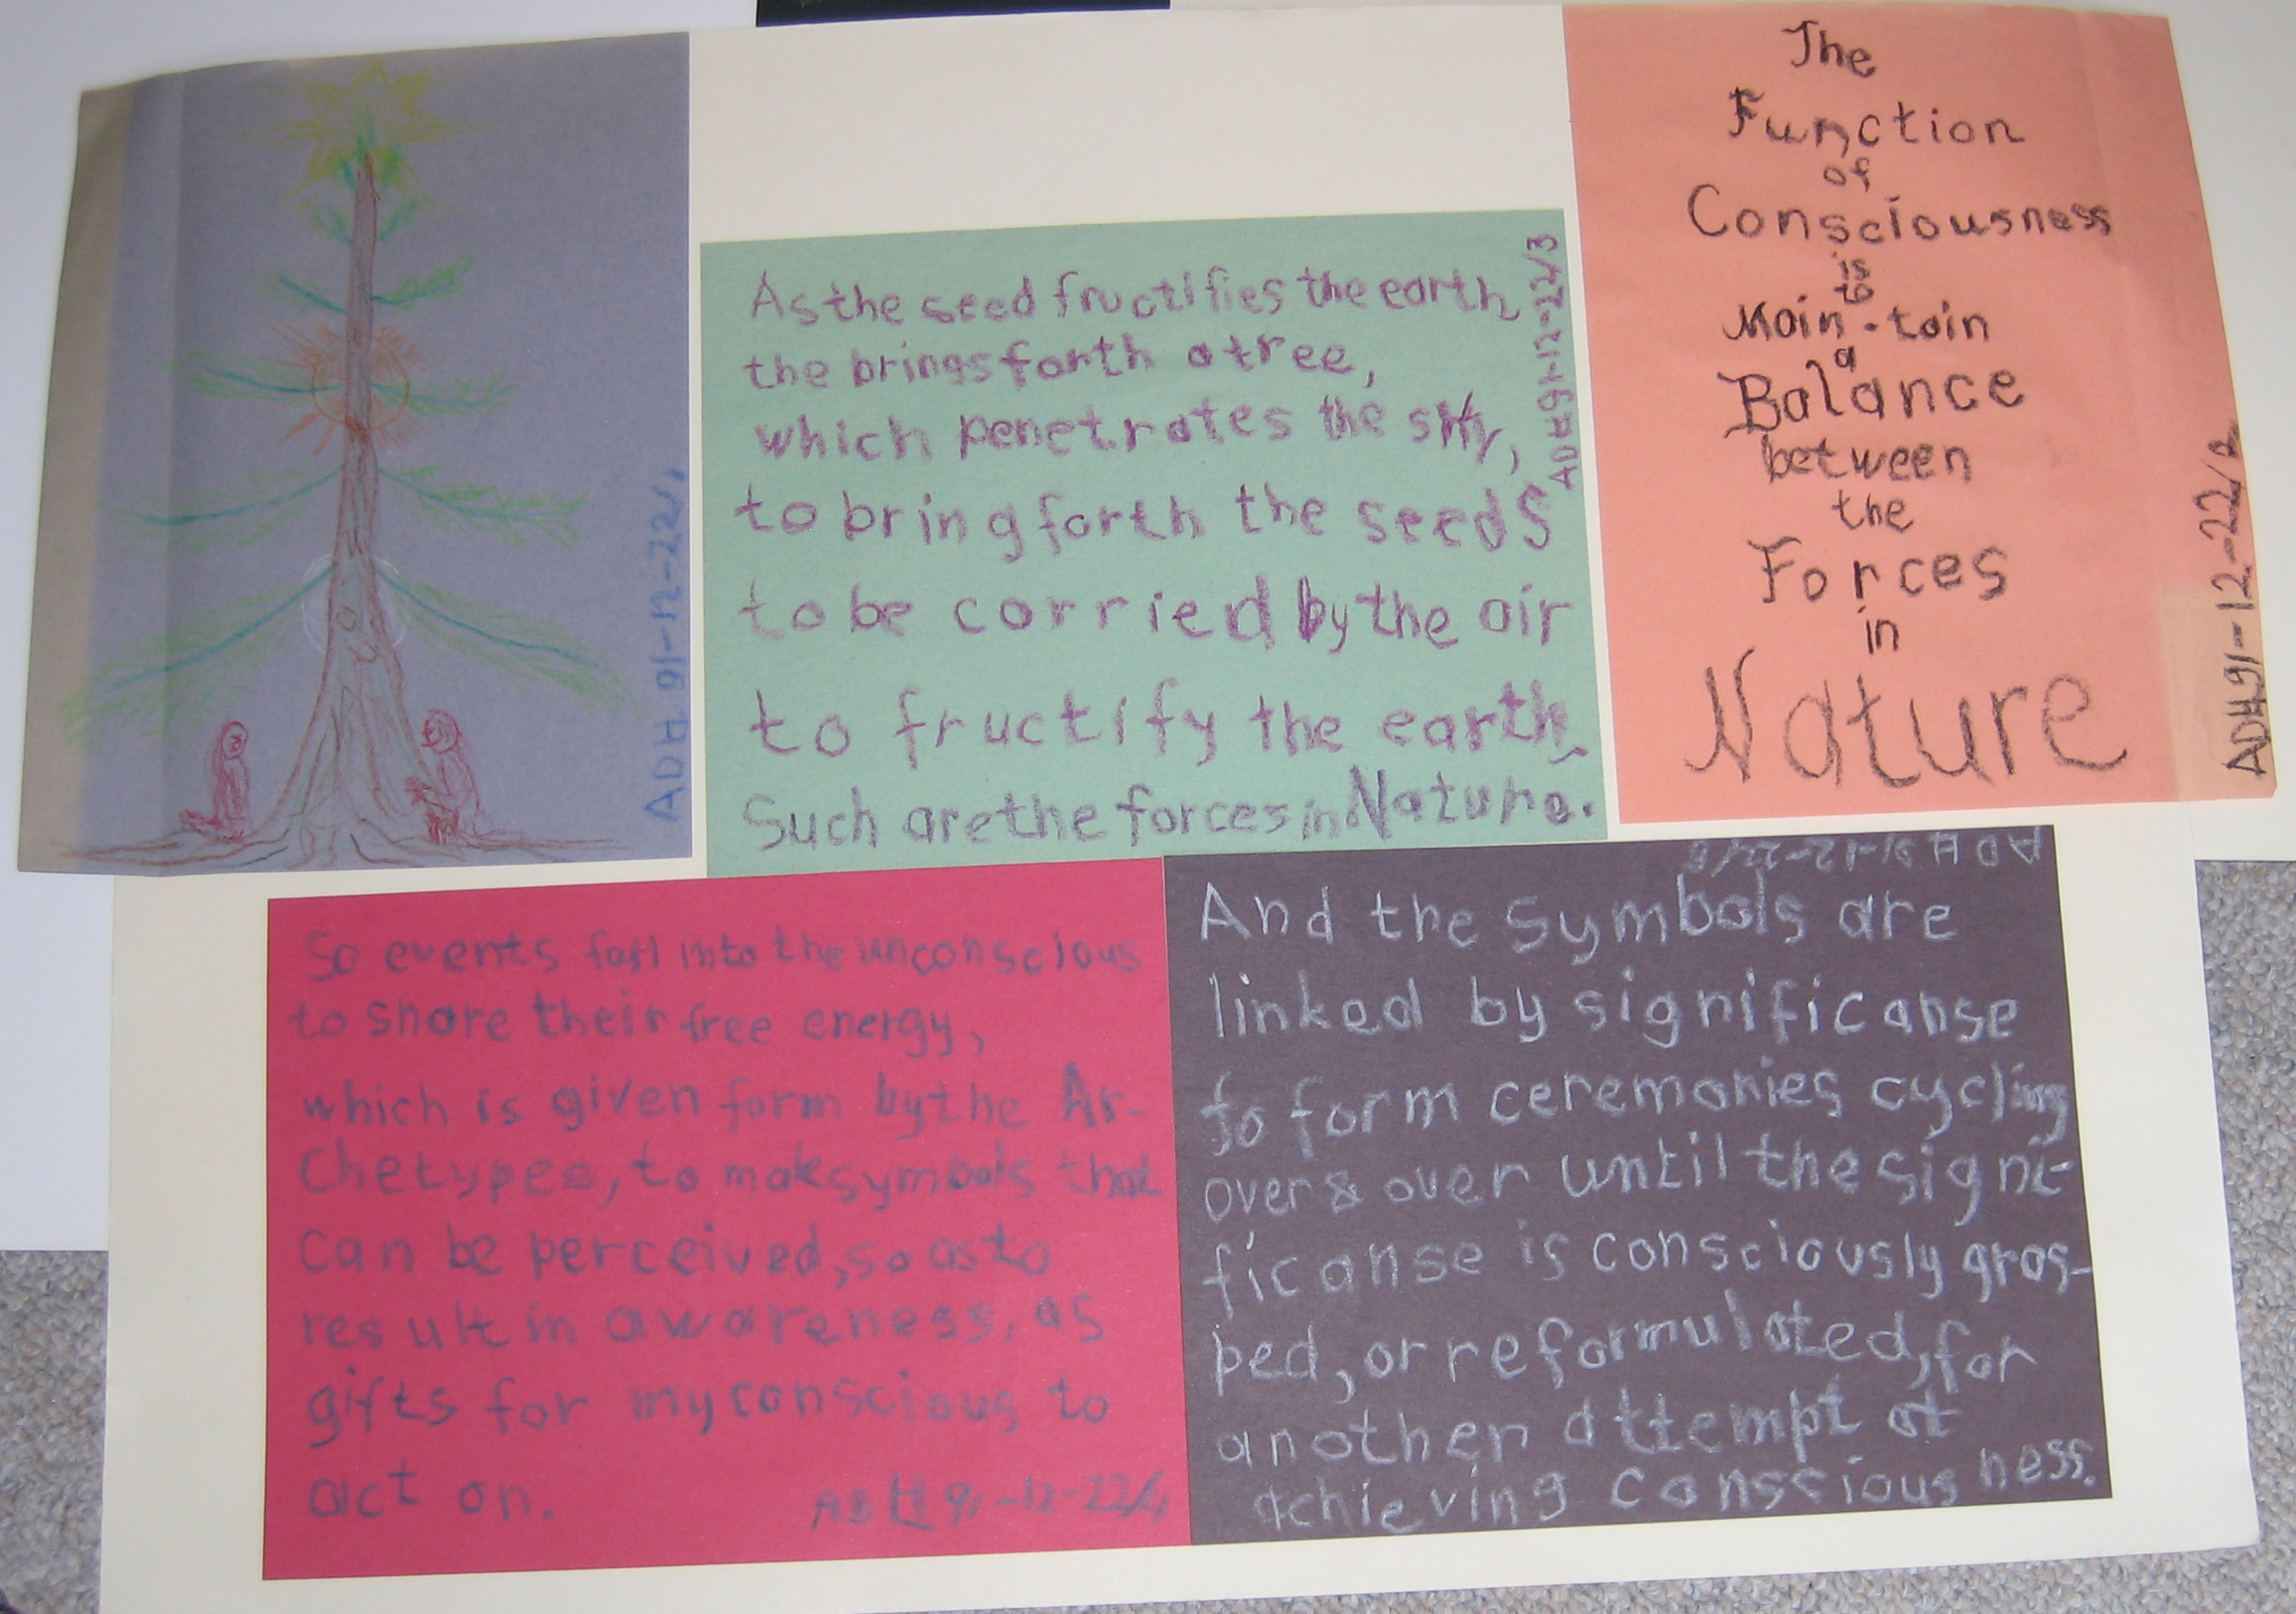 ADH 91-12-22/1
The
Function
of
Consciousness
is
to
Main-tain
a
Balance
between
the
Forces
in
Nature
ADH 91-12-22/2
As the seed fructifies the earth,
the brings forth a tree,
which penetrates the sky,
to bring forth the seeds
to be carried by the air
to fructify the earth,
Such are the forces in Nature.
ADH 91-12-22/3
So events fall into the unconscious
to share their free energy,
which is given form by the Ar-
chetypes, to mak symbols that
can be perceived, so as to
result in awareness, as
gifts for my conscious to
act on.
ADH 91-12-22/4
ADH 91-12-22/5
And the symbols are
linked by significanse
to form ceremonies cycling
over & over until the signi-
ficanse is consciously gras-
ped, or reformulated, for
another attempt at
achieving consciousness.